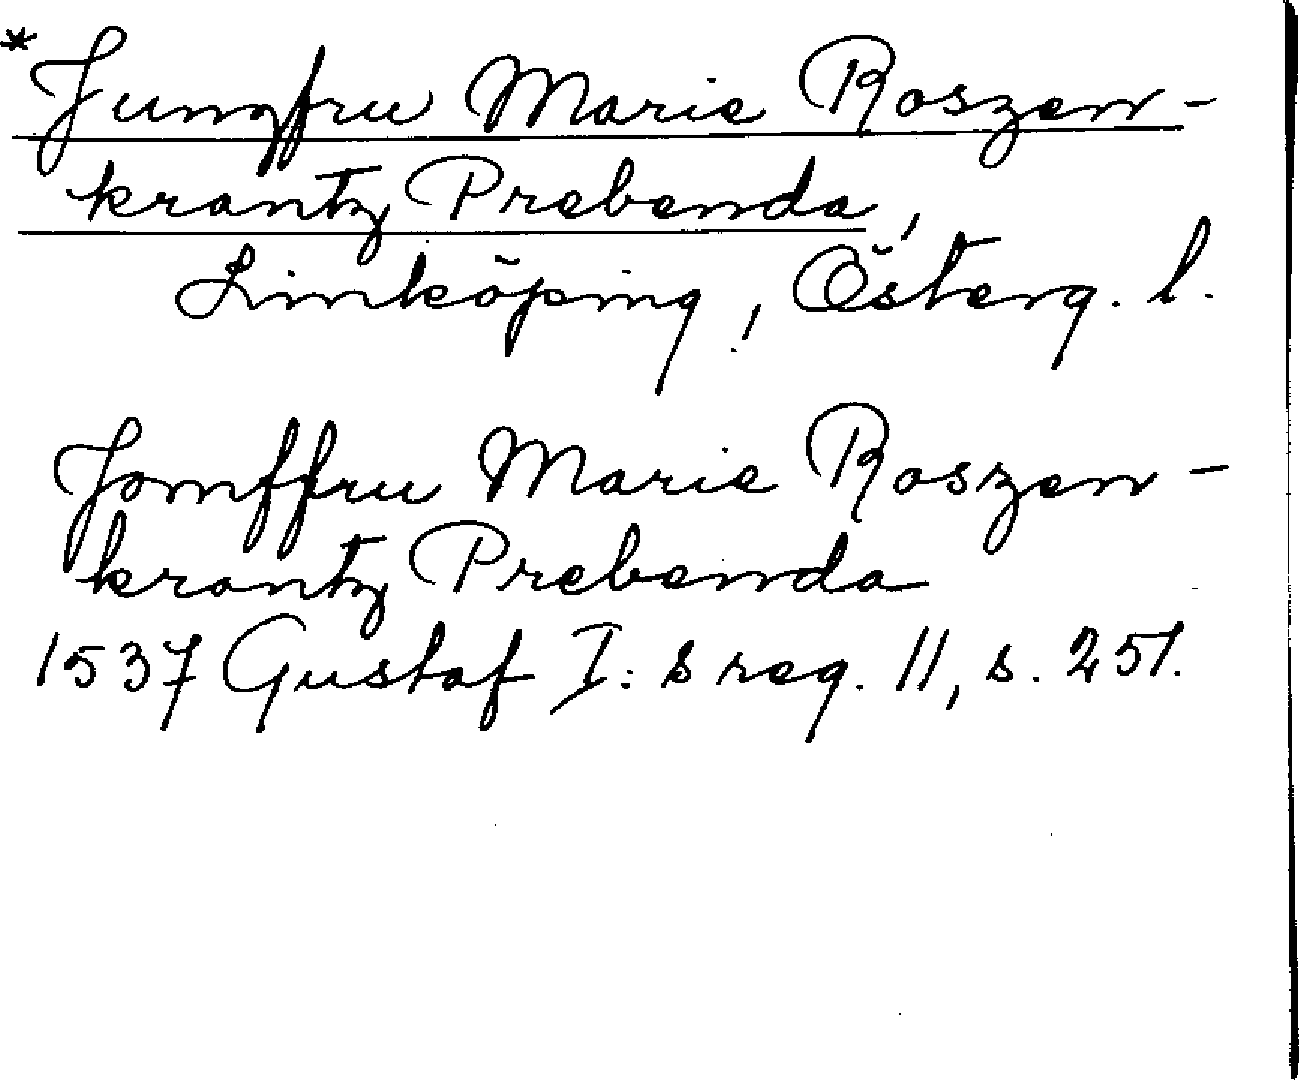 *Jungfru Marie Roszen-
krantz Prebenda,
Linköping, Österg. l.
Jomffru Marie Roszen-
krantz Prebenda
1537 Gustaf I:s reg. 11, s. 251.